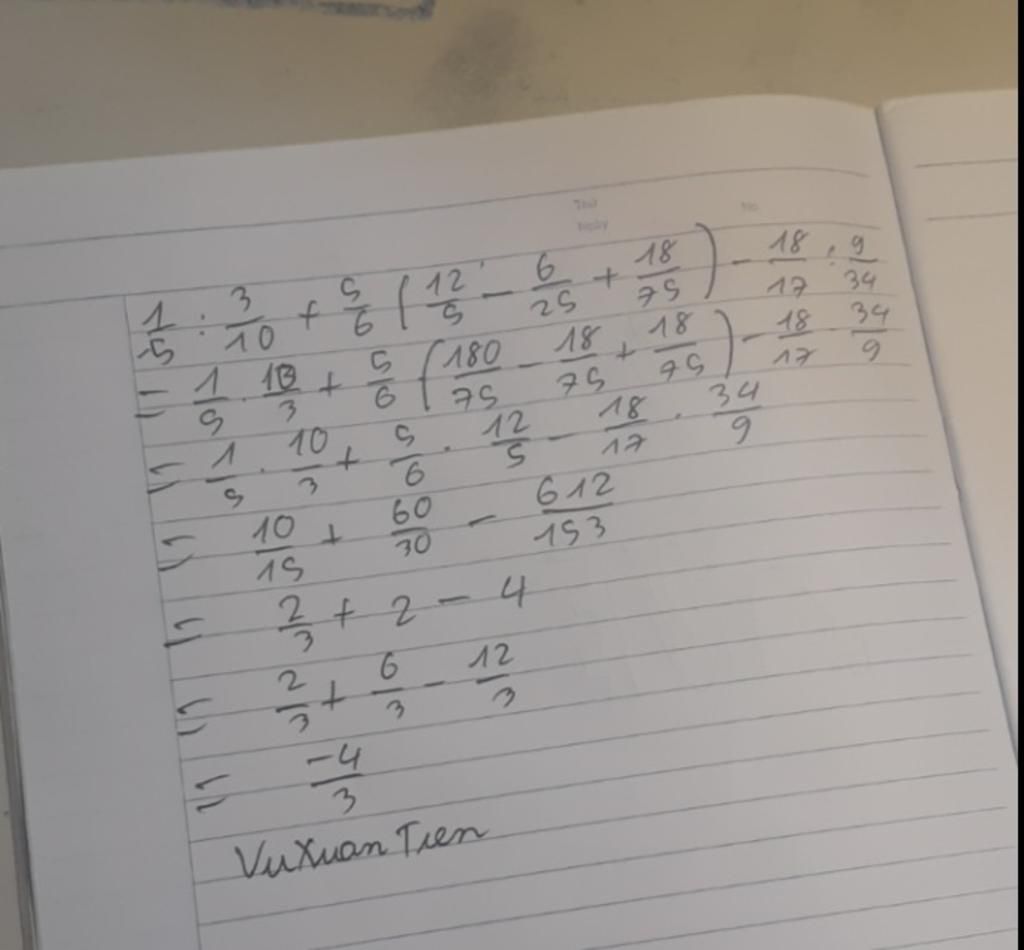 Thứ
Ngày
No.
1/5 : 3/10 + 5/6 (12/5 - 6/25 + 18/75) - 18/17 : 9/34
= 1/5 . 10/3 + 5/6 (180/75 - 18/75 + 18/75) - 18/17 . 34/9
= 1/5 . 10/3 + 5/6 . 12/5 - 18/17 . 34/9
= 10/15 + 60/30 - 612/153
= 2/3 + 2 - 4
= 2/3 + 6/3 - 12/3
= -4/3
VuXuanTien